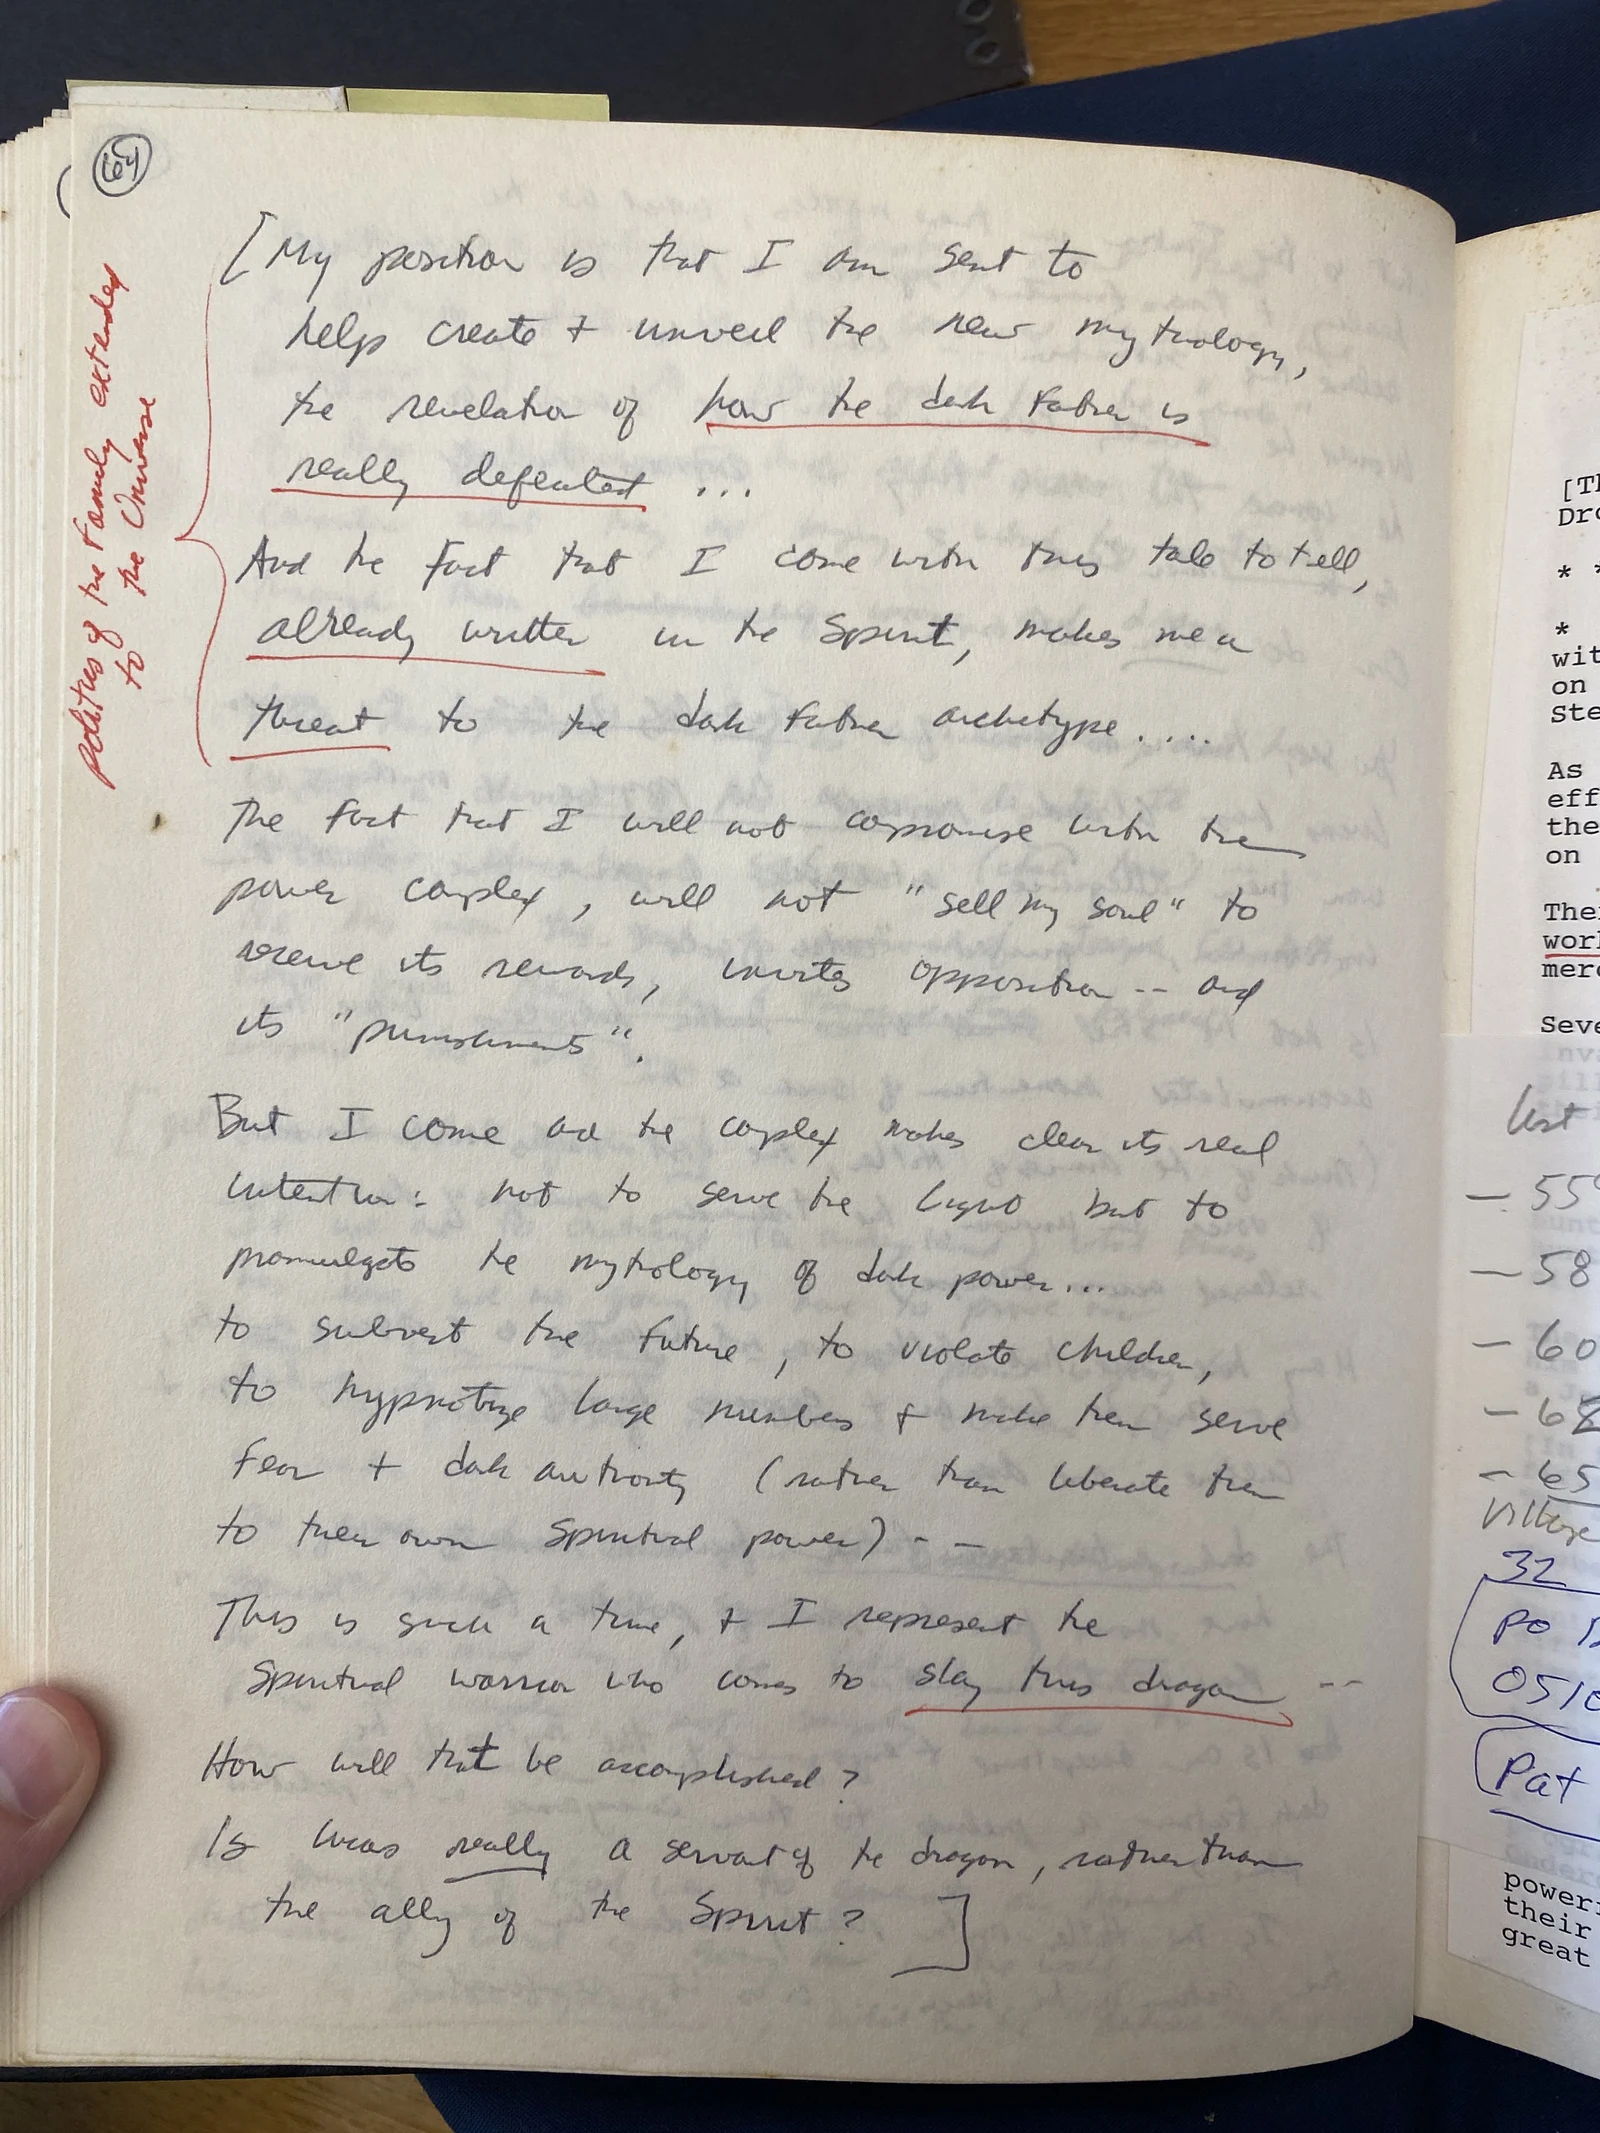 64
Politics of the Family extended
to the Universe
[My position is that I am sent to
help create + unveil the new mythology,
the revelation of how the dark Father is
really defeated ...
And the fact that I come with this tale to tell,
already written in the Spirit, makes me a
threat to the dark Father archetype ....
The fact that I will not compromise with the
power complex, will not "sell my soul" to
receive its rewards, invites opposition -- and
its "punishments".
But I come and the complex makes clear its real
intention: not to serve the Light but to
promulgate the mythology of dark power...
to subvert the future, to violate children,
to hypnotize large numbers + make them serve
fear + dark authority (rather than liberate them
to their own spiritual power) --
This is such a time, + I represent the
Spiritual warrior who comes to slay this dragon --
How will that be accomplished?
Is Lucas really a servant of the dragon, rather than
the ally of the Spirit? ]
[Th
Dro
* *
*
wit
on
Ste
As
eff
the
on
Thei
work
merc
Seve
- 55
- 58
- 60
- 65
Village
32
PO
051
Pat
power
their
great